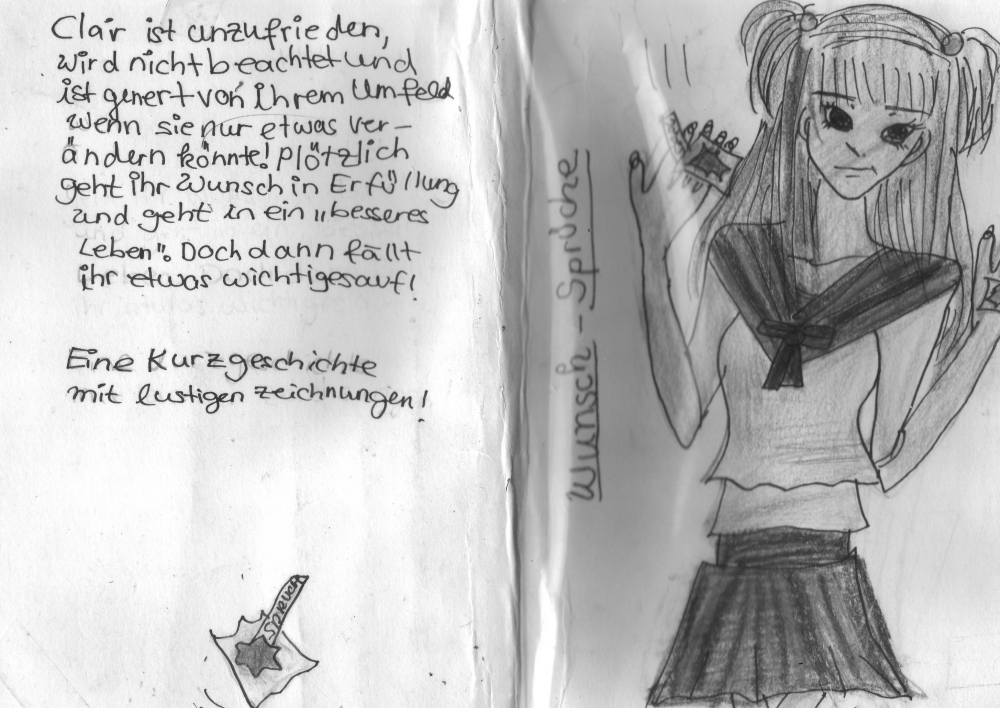 Clair ist unzufrieden,
wird nicht beachtet und
ist genert von ihrem Umfeld
Wenn sie nur etwas ver-
ändern könnte! Plötzlich
geht ihr Wunsch in Erfüllung
und geht in ein "besseres
Leben". Doch dann fällt
ihr etwas wichtiges auf!
Eine Kurzgeschichte
mit lustigen zeichnungen!
Wunsch-Sprüche